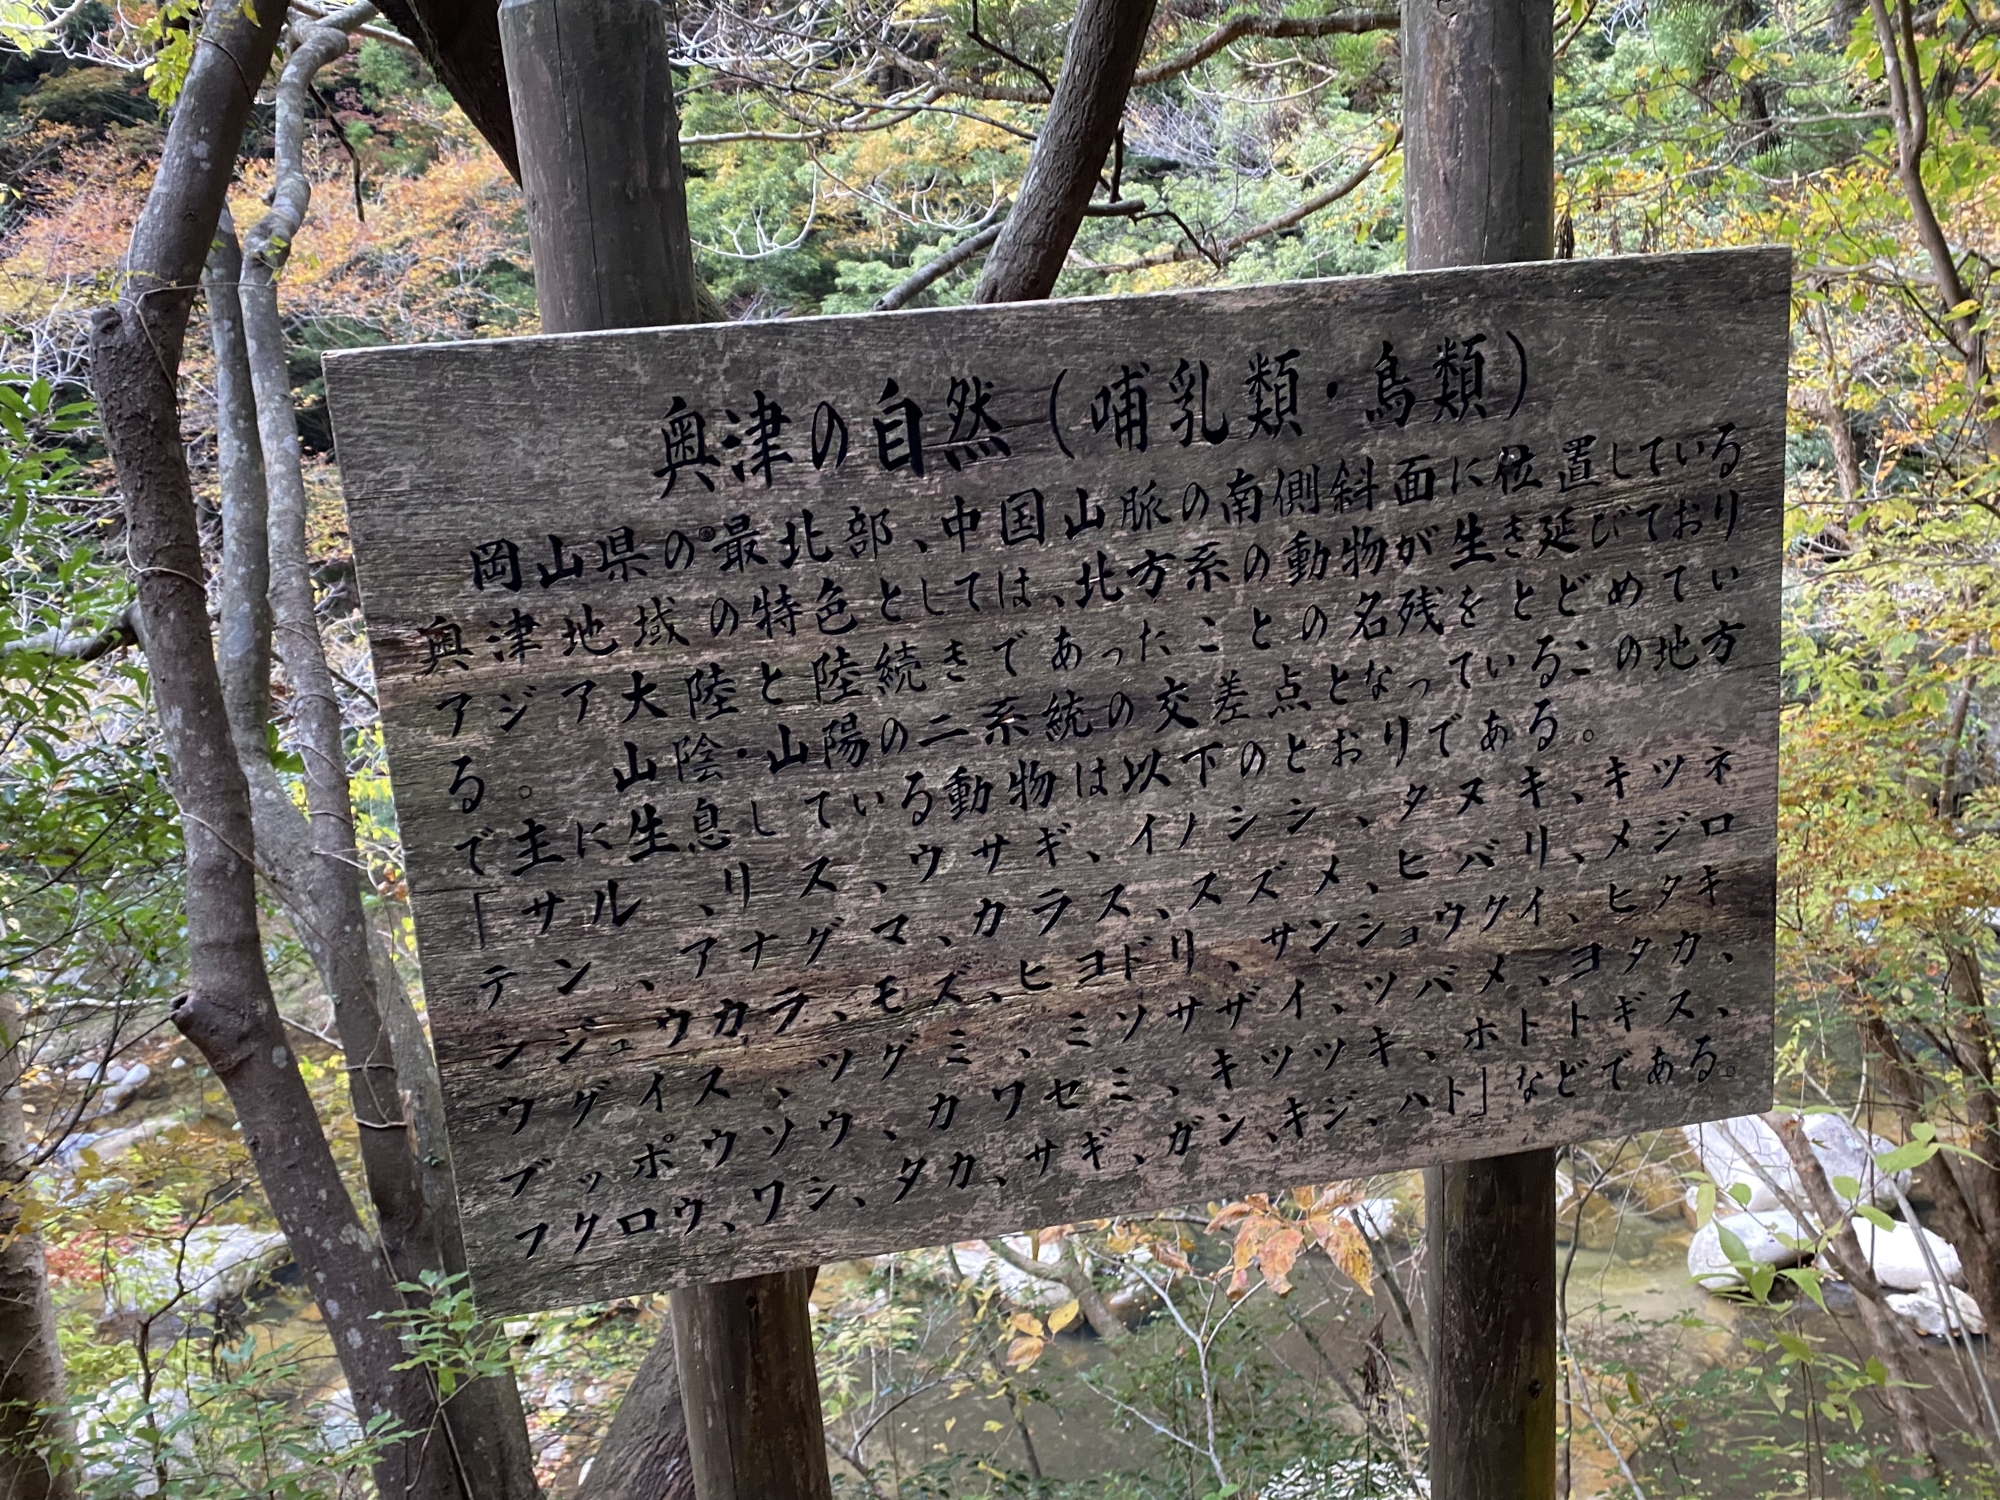 奥津の自然(哺乳類・鳥類)
岡山県の最北部、中国山脈の南側斜面に位置している
奥津地域の特色としては、北方系の動物が生き延びており
アジア大陸と陸続きであったことの名残をとどめてい
る。 山陰・山陽の二系統の交差点となっているこの地方
で主に生息している動物は以下のとおりである。
「サル、リス、ウサギ、イノシシ、タヌキ、キツネ
テン、アナグマ、カラス、スズメ、ヒバリ、メジロ
シジュウカラ、モズ、ヒヨドリ、サンショウクイ、ヒタキ
ウグイス、ツグミ、ミソサザイ、ツバメ、ヨタカ、
ブッポウソウ、カワセミ、キツツキ、ホトトギス、
フクロウ、ワシ、タカ、サギ、ガン、キジ、ハト」などである。